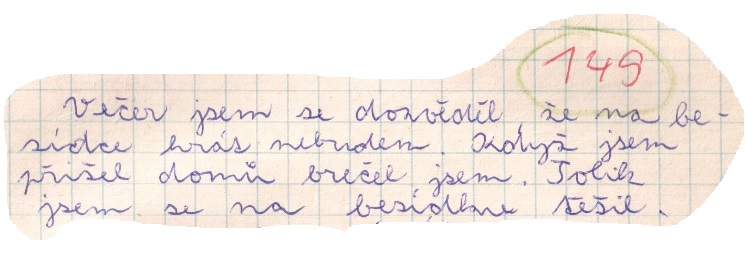 149
Večer jsem se dozvěděl, že na be-
sídce hrát nebudem. Když jsem
přišel domů brečel jsem. Tolik
jsem se na besídku těšil.